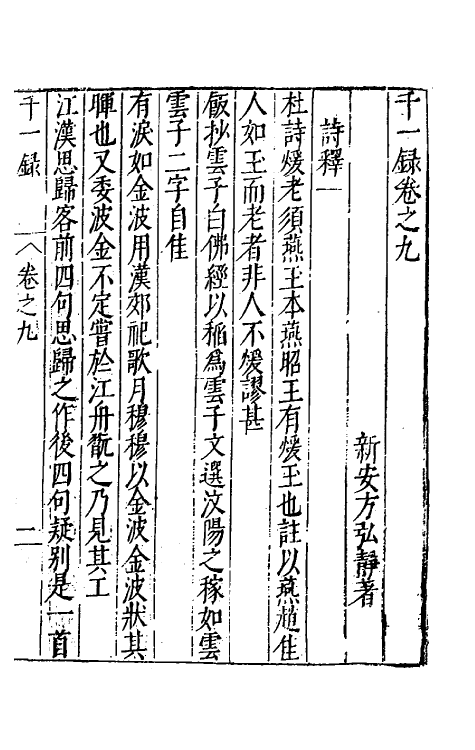 千一録卷之九
新安方弘靜著
詩釋一
杜詩煖老須燕玉本燕昭王有煖玉也註以燕趙佳
人如玉而老者非人不煖謬甚
飯抄雲子白佛經以稲爲雲子文選汶陽之稼如雲
雲子二字自佳
有淚如金波用漢郊祀歌月穆穆以金波金波狀其
暉也又委波金不定嘗於江舟翫之乃見其工
江漢思歸客前四句思歸之作後四句疑别是一首
千一録
卷之九
一